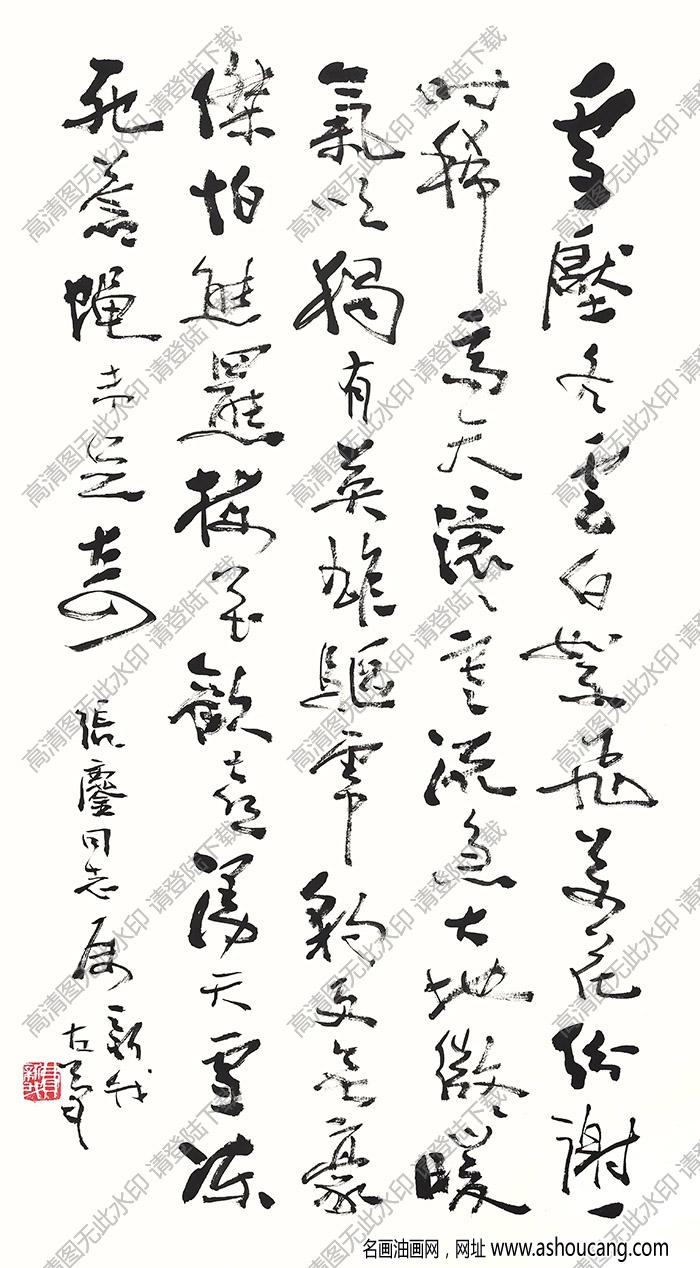 雪壓冬雲白絮飛萬花紛謝一
時稀高天滾滾寒流急大地微微暖
氣吹獨有英雄驅虎豹更無豪
傑怕熊羆梅花歡喜漫天雪凍
死蒼蠅未足奇
張鎏同志属
新我
左筆
高清图无此水印 请登陆下载
名画油画网，网址 www.ashoucang.com